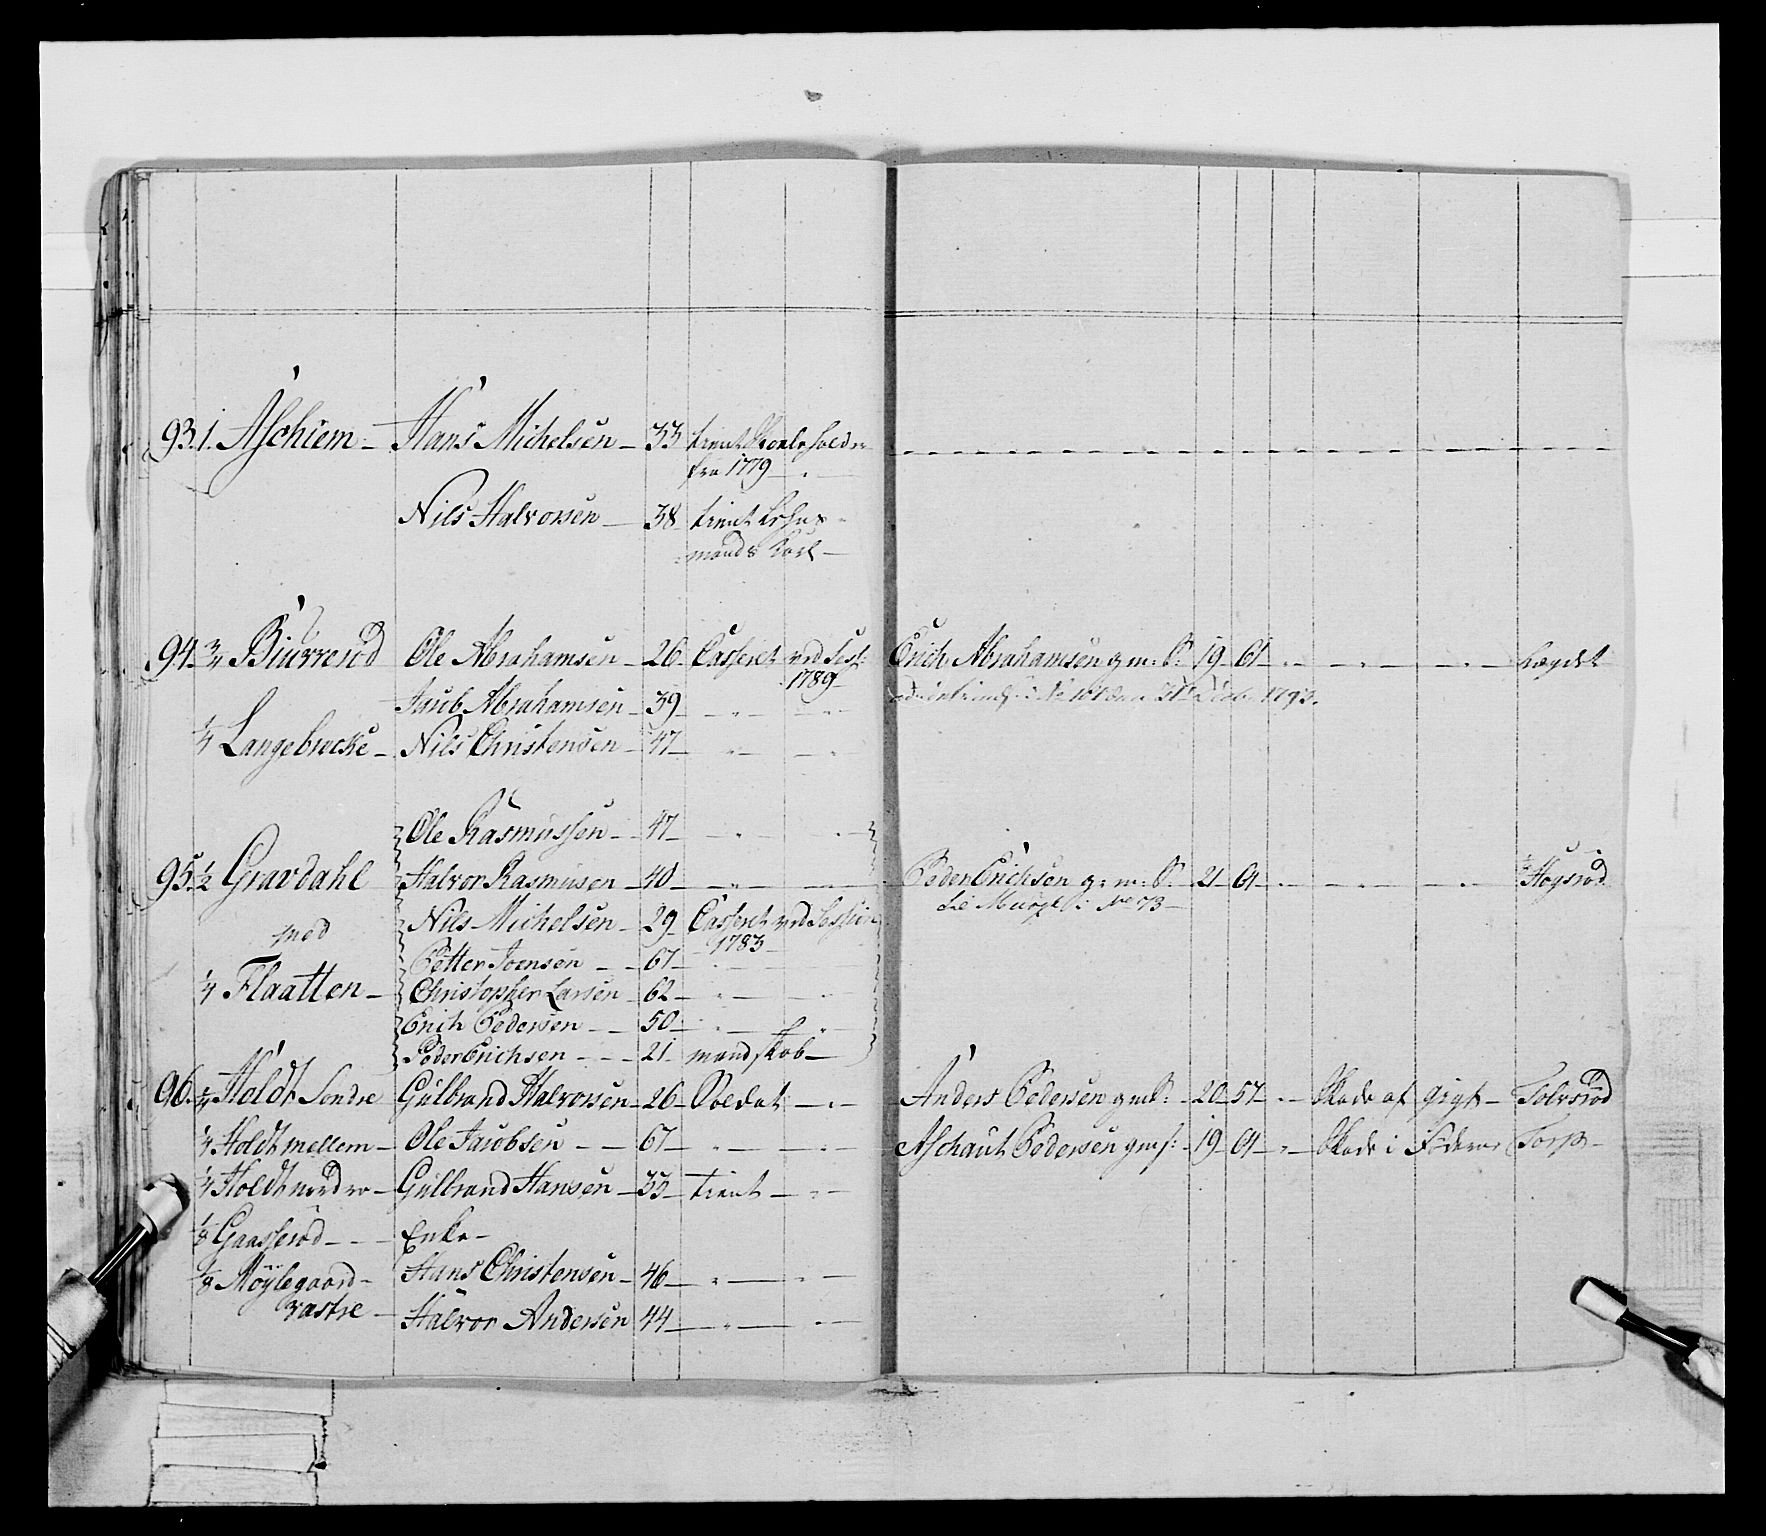 93. 1. Aschiem - Hans Michelsen - 33 tient
fra 1779 -
Nils Halvorsen - 38 - tient
mands Karl -
94. 3/4 Biurrerød Ole Abrahamsen - 26 - Casseret ved Sess: Erich Abrahamsen g: m: S: 19 - 61 - " - " - " - Lægdet
1789
Jacob Abrahamsen - 39 - " - " 1793.
1/4 Langebrecke - Nils Christensen - 47 - " - "
Ole Rasmussen - 47 - " - "
95. 1/2 Gravdahl Halvor Rasmusen - 40 - " - Peder Erichsen g: m: S: 21 - 61 - " - " - " - Høgsrød
Nils Michelsen - 29 - Casseret ved Session No 73 -
med 1783
Petter Joensen - - 67 - "
1/4 Flaatten - Christopher Larsen - 62 - " - "
Erich Pedersen - - 50 - " - "
Peder Erichsen - - - 21 - mandskab -
96. 1/4 Holdt Søndre Gulbrand Halvorsen - 26 - Soldat - " - Anders Pedersen g m S: - 20 - 57 - " - Skade af Gigt - Tolvsrød
1/4 Holdt mellem - Ole Jacobsen - - 67 - " - " - Aschaut Pedersen g m s: - 19 - 61 - " - Skade i Fødderne Torp -
1/4 Holdt nordre - Gulbrand Hansen - 33 - tient - " -
1/8 Gaasserød - - - Enke -
1/8 Møÿlegaard - Hans Christensen - 46 - " - " -
vestre - Halvor Andersen 44 - " - " -